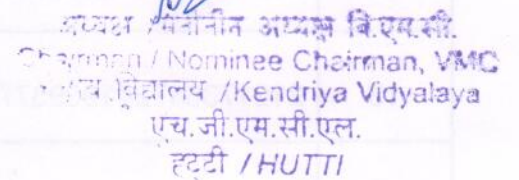 अध्यक्ष / मनोनीत अध्यक्ष वि.एम.सी.
Chairman / Nominee Chairman, VMC
विद्यालय / Kendriya Vidyalaya
एच.जी.एम.सी.एल.
हट्टी / HUTTI